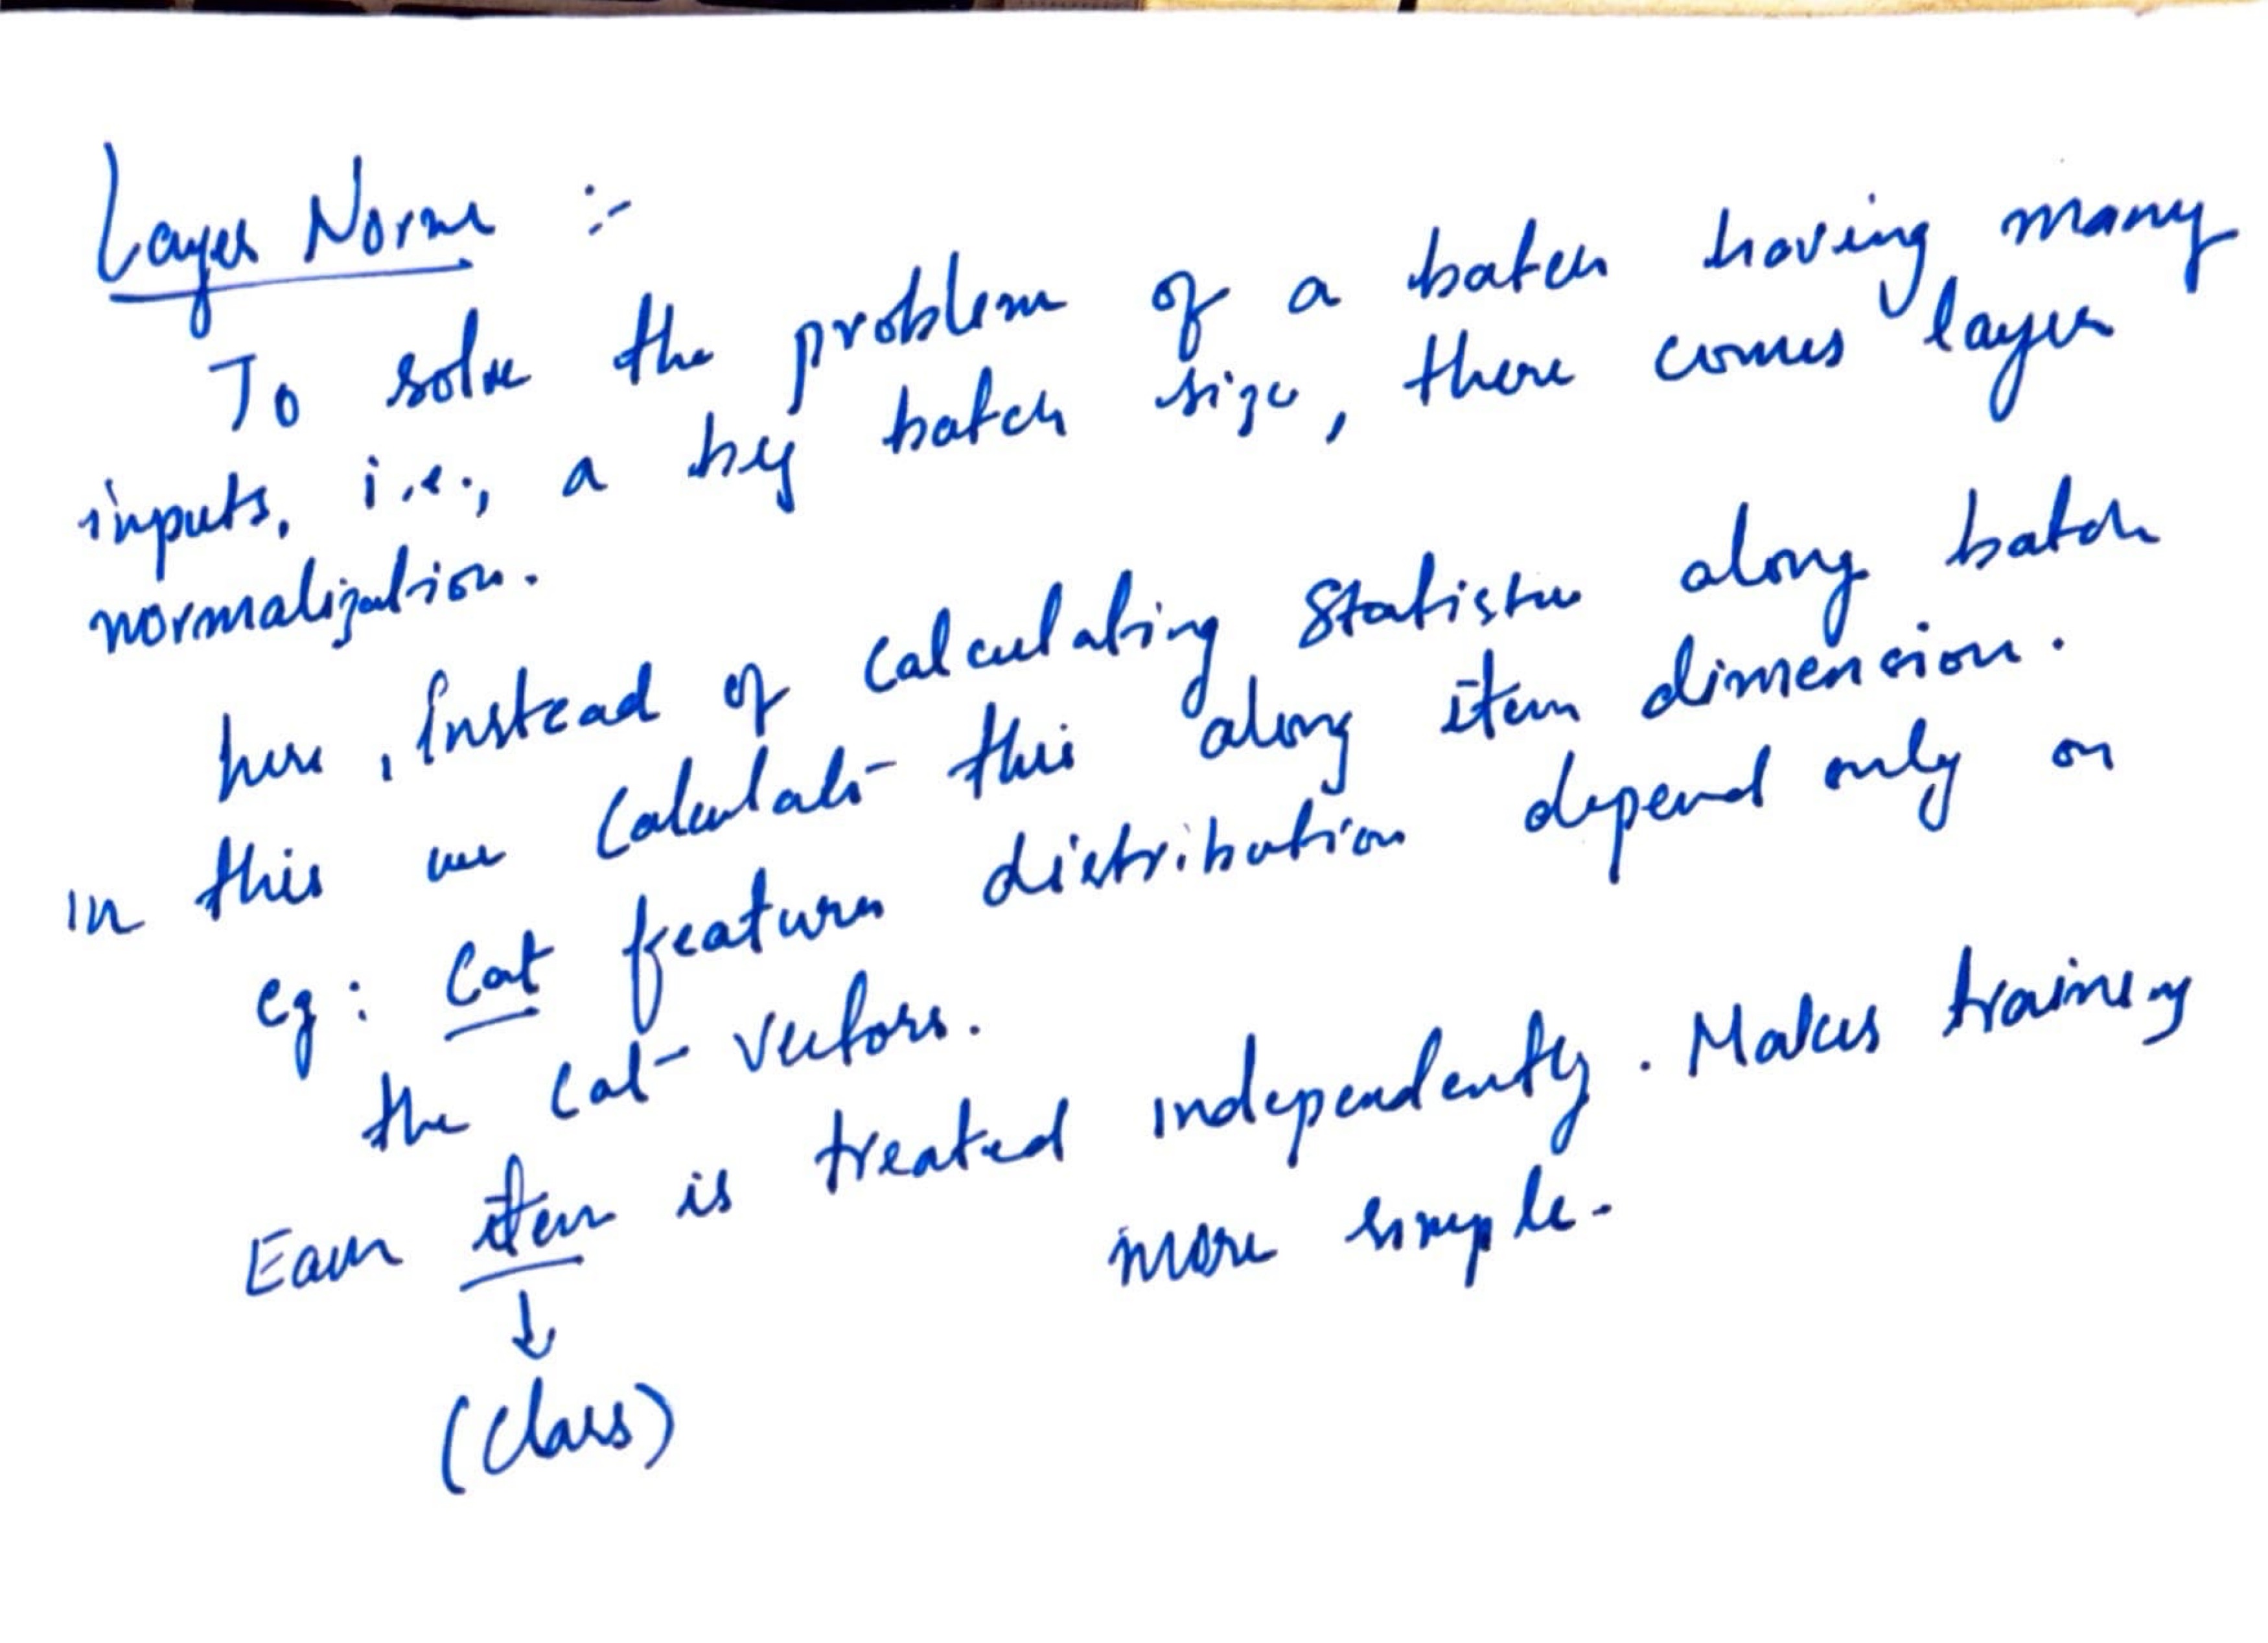 Layer Norm :-
To solve the problem of a batch having many
inputs, i.e., a big batch size, there comes layer
normalization.
here, Instead of calculating statistics along batch
in this we calculate this along item dimension.
eg: Cat features distribution depend only on
the cat vectors.
Each item is treated independently. Makes training
more simple.
↓
(Class)